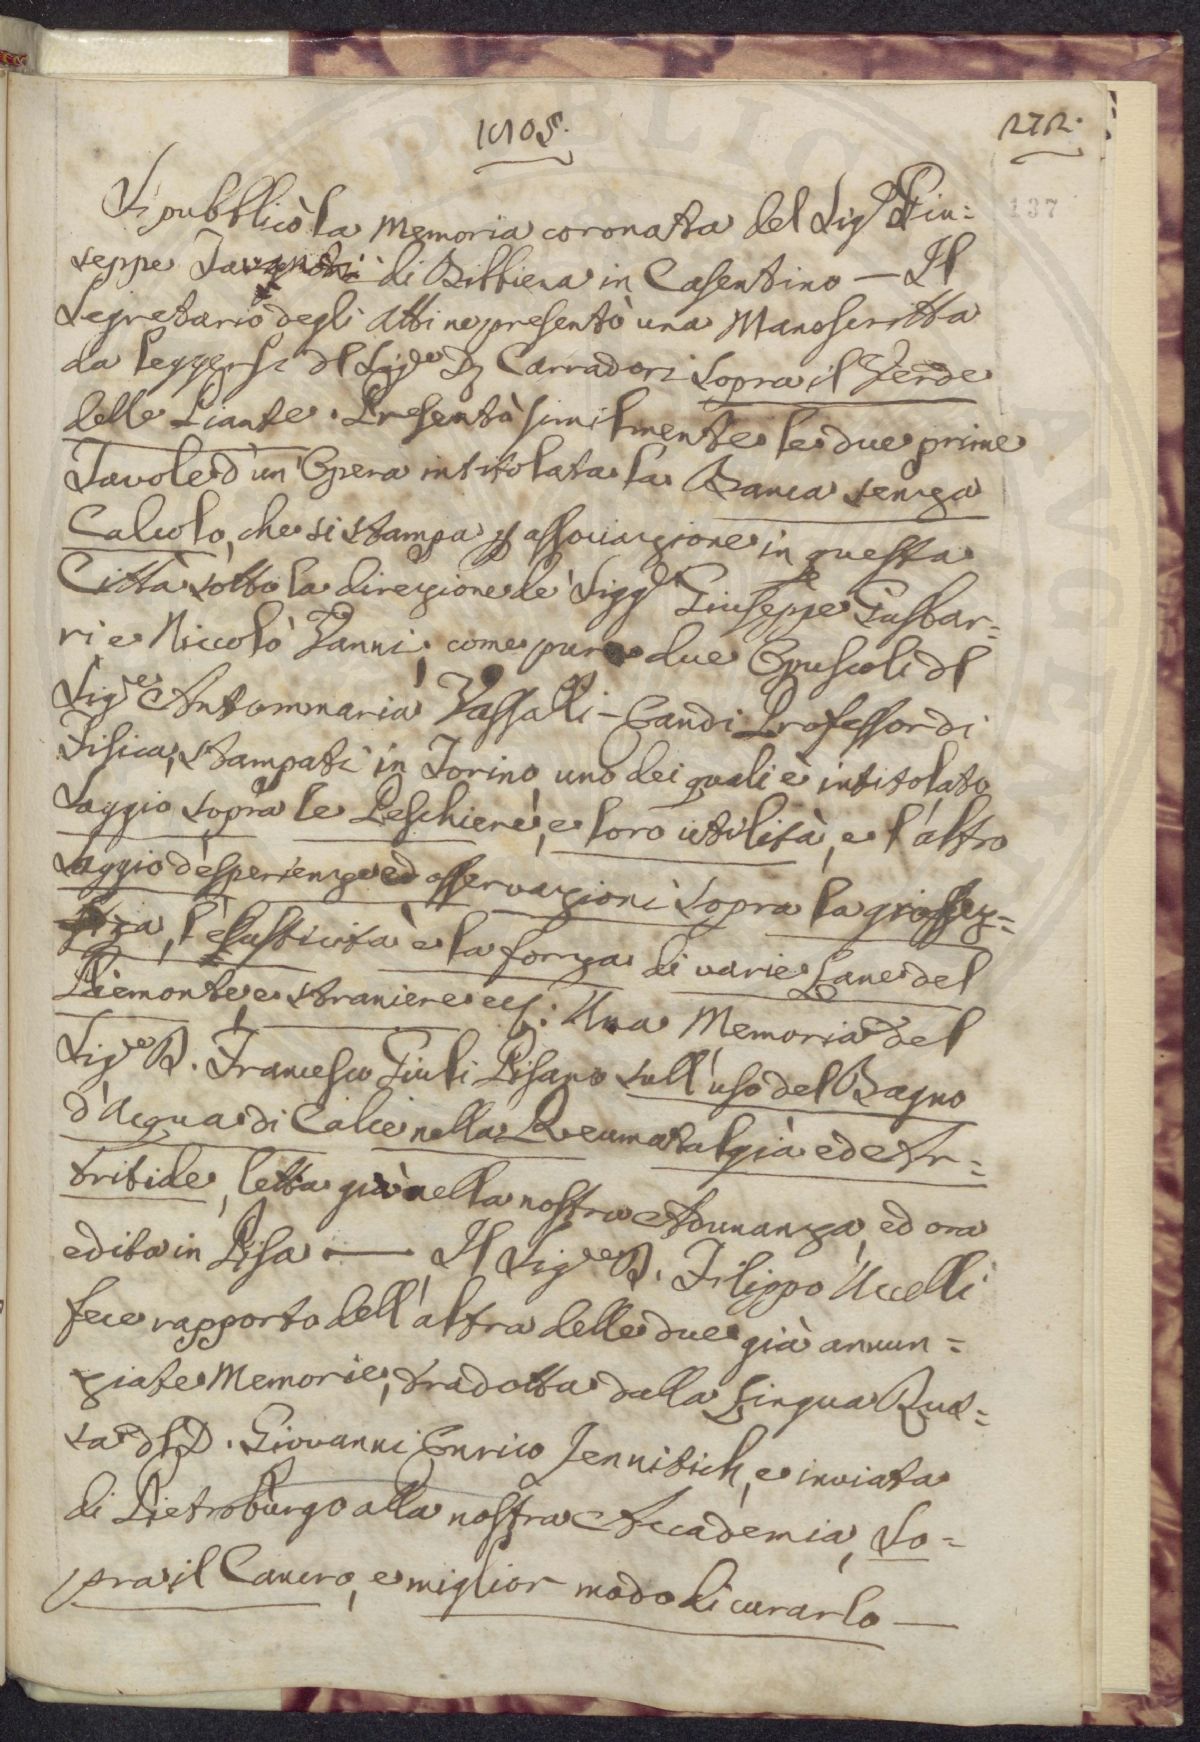 1805.
272.
137
Si pubblicò la Memoria coronata del Sig.r Giu=
seppe di Bibbiena in Casentino — Il
Segretario degli Atti ne presentò una Manoscritta
da leggersi del Sig.e D. Carradori sopra il Verde
delle Piante. Presentò similmente le due prime
Tavole d'un'Opera intitolata la Banca senza
Calcolo, che si stampa p associazione in questa
Città sotto la direzione de' Sigg.i Giuseppe Gasbar=
ri e Niccolò Vanni; come pure due Opuscoli del
Sig.e Antommaria Vassalli-Eandi Professor di
Fisica, stampati in Torino, uno dei quali è intitolato
Saggio sopra le Peschiere, e loro utilità, e l'altro
Saggio d'esperienze ed osservazioni sopra la grossez=
za, l'elasticità e la forza di varie Lane del
Piemonte, e straniere ec.: Una Memoria del
Sig.e D. Francesco Giuli Pisano sull'uso del Bagno
d'Acqua di Calce nella Reumatalgìa ed Ar=
tritide, letta già nella nostra Adunanza, ed ora
edita in Pisa — Il Sig.e D. Filippo Uccelli
fece rapporto dell'altra delle due già annun=
ziate Memorie, tradotta dalla Lingua Rus=
sa dl D. Giovanni Enrico Jennitich, e inviata
di Pietroburgo alla nostra Accademia, So=
pra il Cancro, e miglior modo di curarlo —
PUBLIC